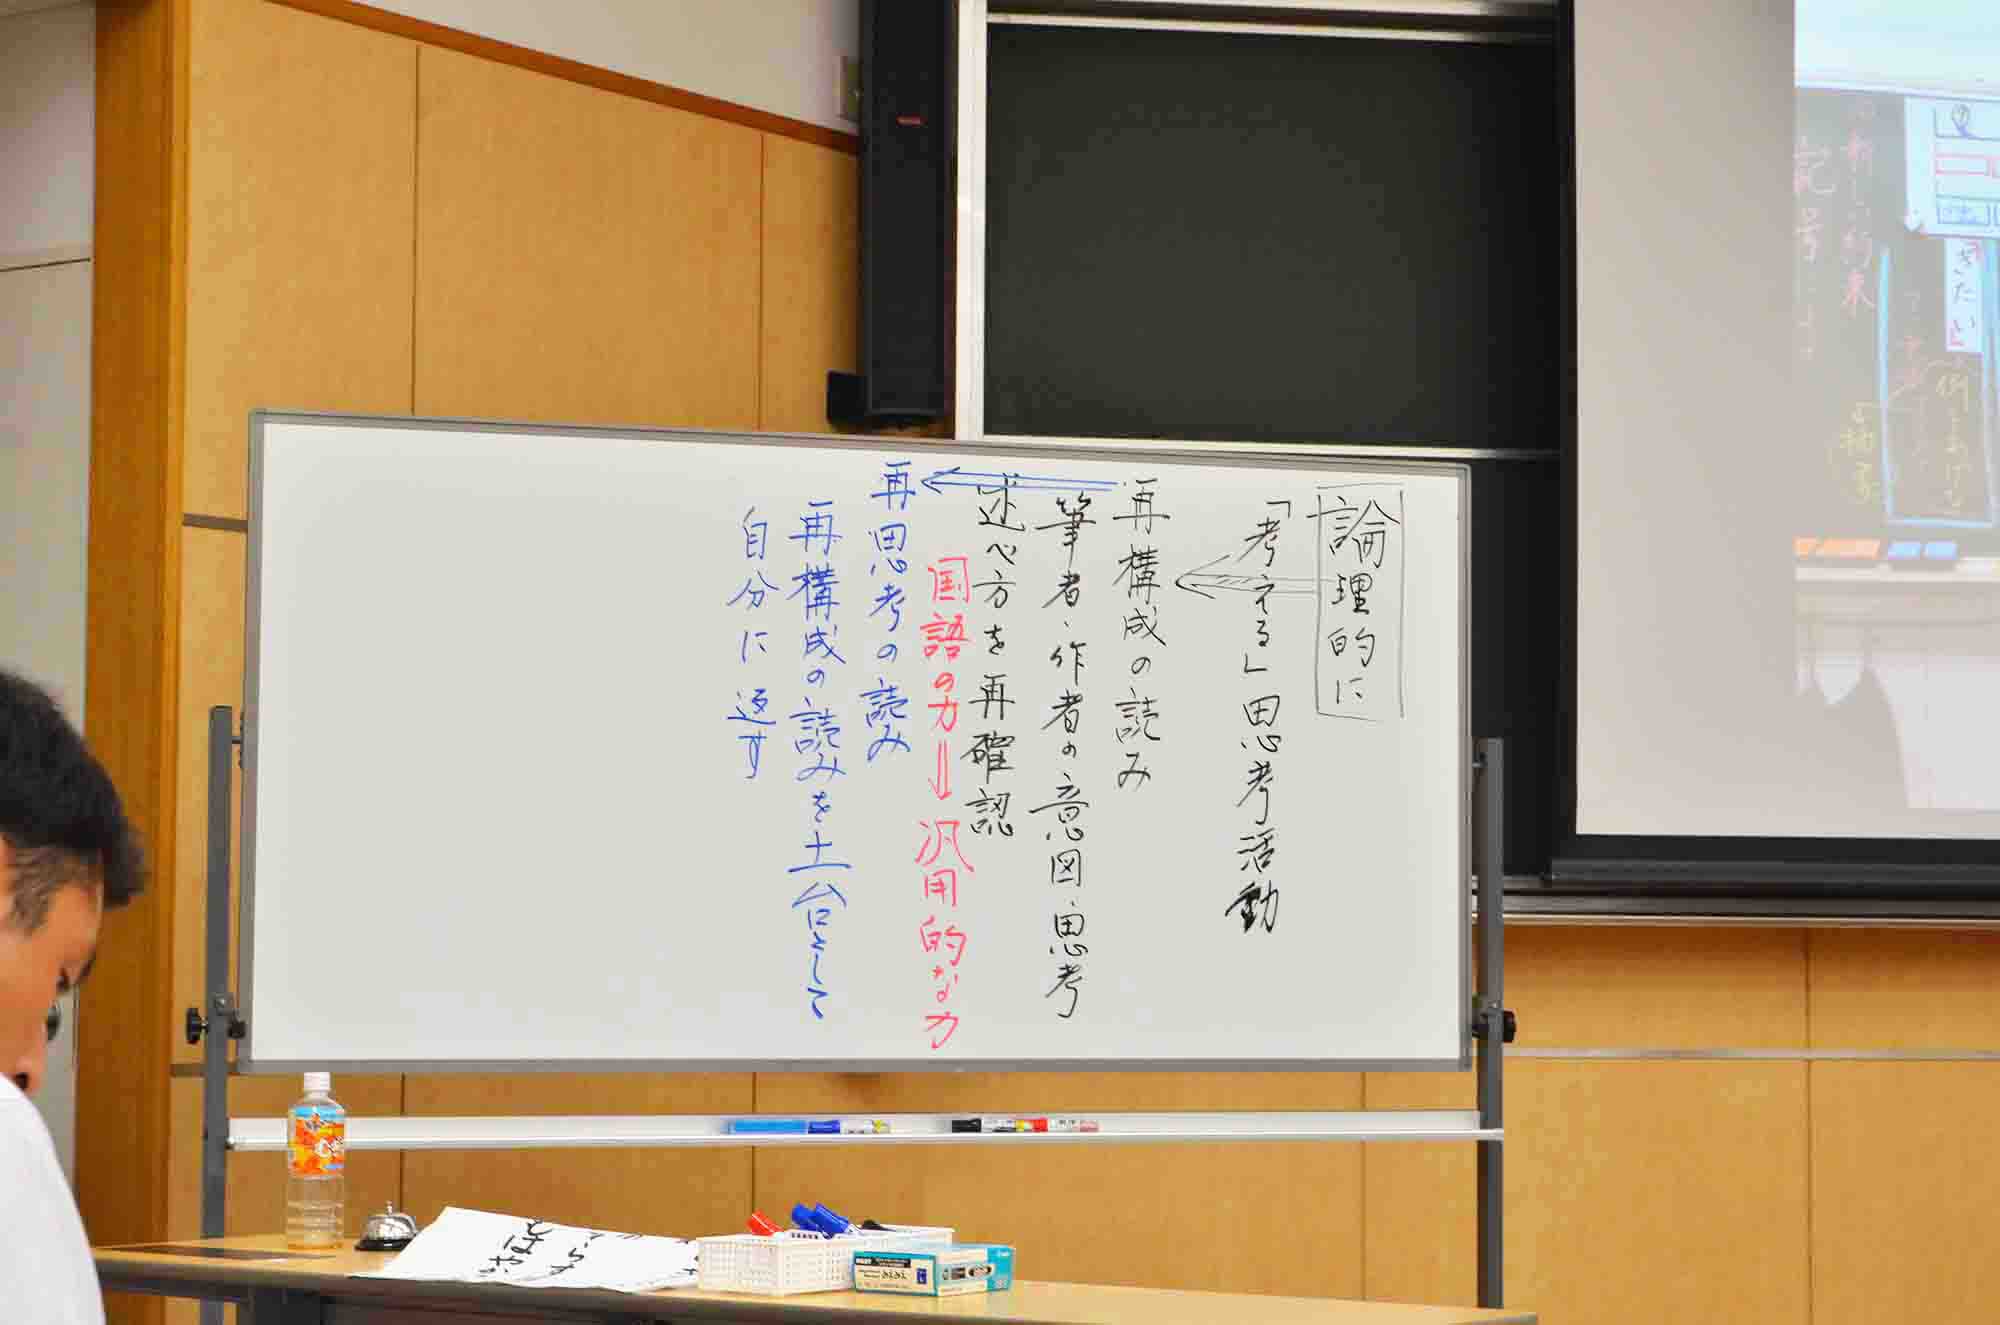 論理的に
「考える」思考活動
再構成の読み
筆者・作者の意図思考
述べ方を再確認
国語の力⇒汎用的な力
再思考の読み
再構成の読みを土台として
自分に返す
新しい約束
記号
きたい』
例をあげる